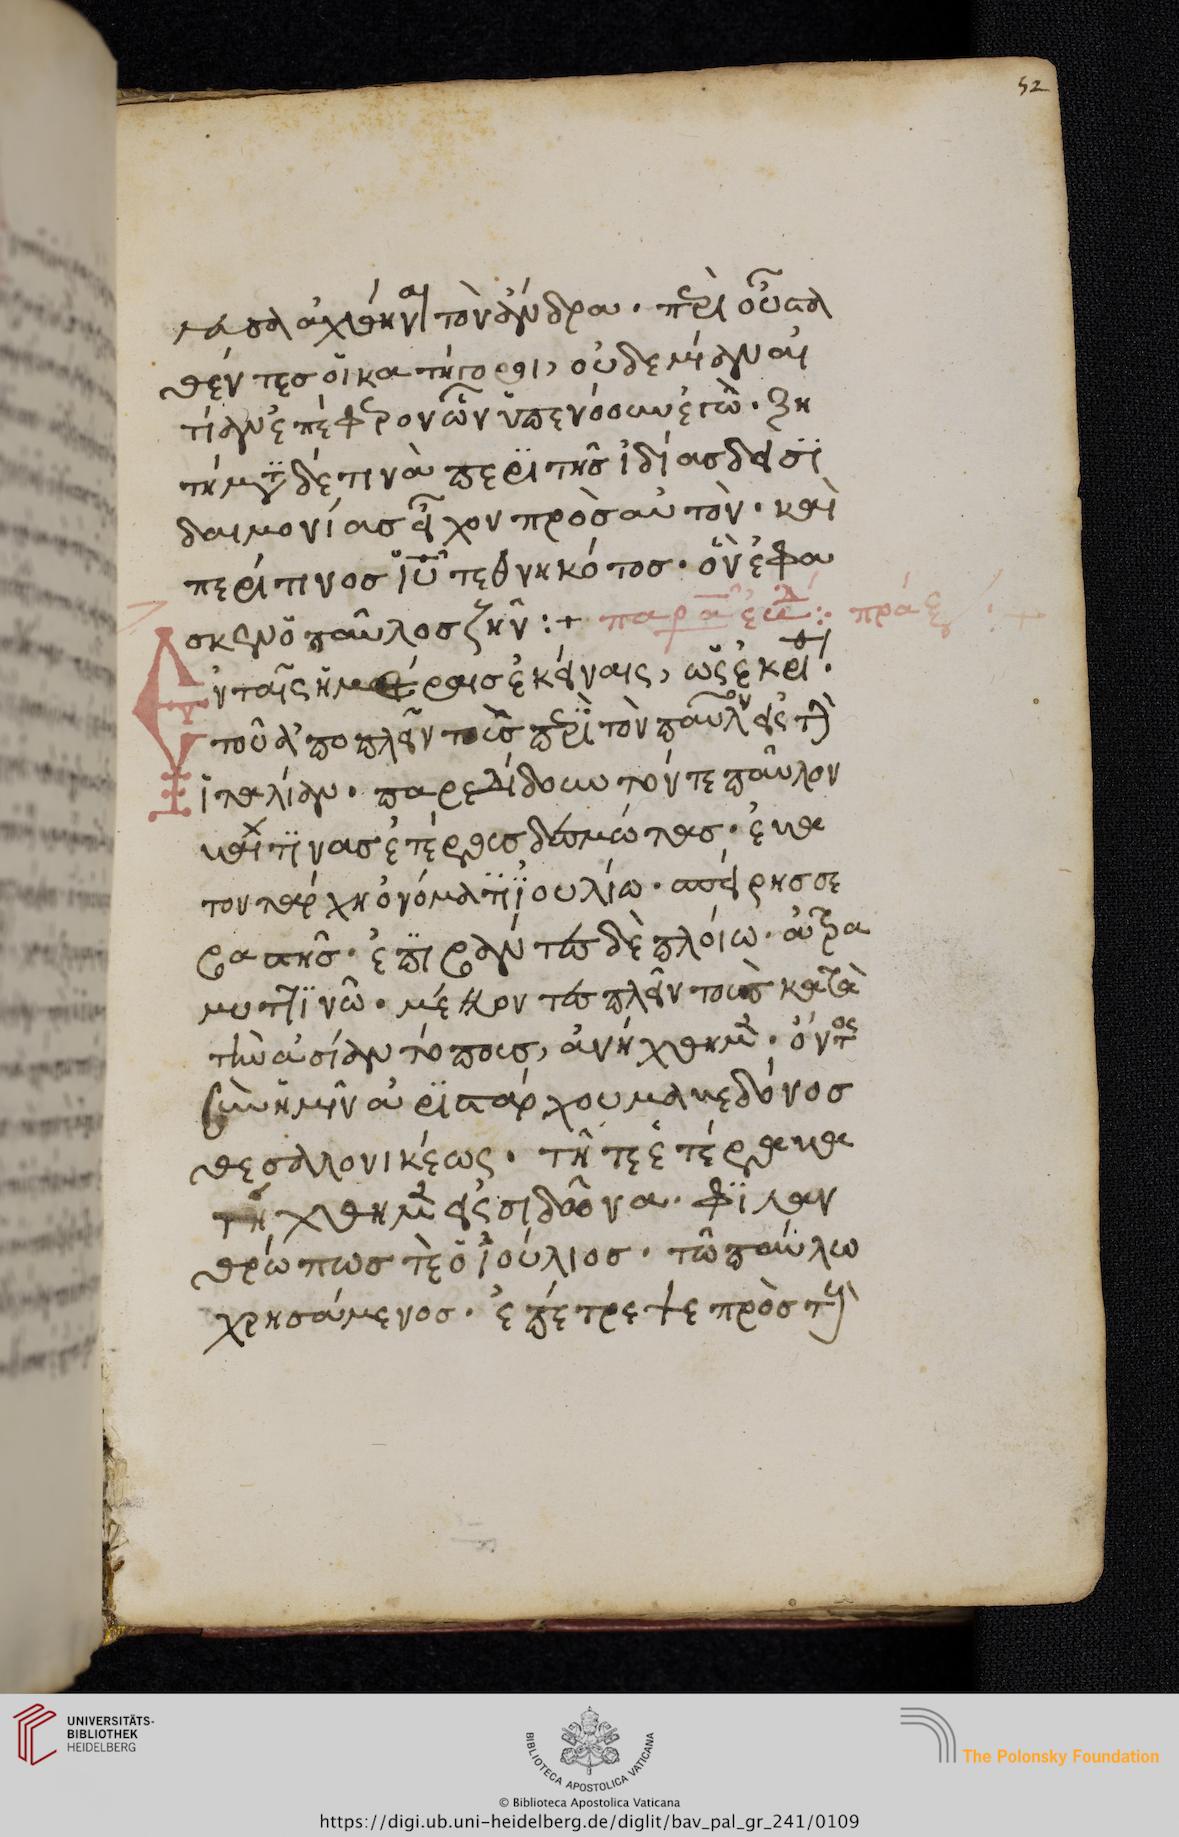 52
σα ἀχθῆναι τὸν ἄνδρα· περὶ οὗ στα
θέντες οἱ κατήγοροι, οὐδεμίαν αἰ
τίαν ἐπέφερον ὧν ὑπενόουν ἐγώ· ζη
τήματα δέ τινα περὶ τῆς ἰδίας δεισι
δαιμονίας εἶχον πρὸς αὐτόν· καὶ
περί τινος ἰῦ τεθνηκότος· ὃν ἔφα
σκεν ὁ παῦλος ζῆν :+
πράξ
ἐν ταῖς ἡμέραις ἐκείναις, ὡς ἐκρίθη
τοῦ ἀποπλεῖν τοὺς περὶ τὸν παῦλον εἰς τὴν
ἰταλίαν· παρεδίδουν τόν τε παῦλον
καί τινας ἑτέρους δεσμώτας· ἑκα
τοντάρχη ὀνόματι ἰουλίω· σπείρης σε
βαστῆς· ἐπιβάντες δὲ πλοίω· ἀδρα
μυτινῶ· μέλλοντες πλεῖν τοὺς κατὰ
τὴν ἀσίαν τόπους, ἀνήχθημεν· ὄντος
σὺν ἡμῖν ἀριστάρχου μακεδόνος
θεσσαλονικέως· τῆ τε ἑτέρα κα
τήχθημεν εἰς σιδῶνα· φιλαν
θρώπως τὲ ὁ ἰούλιος· τῶ παύλω
χρησάμενος· ἐπέτρεψε πρὸς τοὺς
UNIVERSITÄTS-
BIBLIOTHEK
HEIDELBERG
BIBLIOTECA APOSTOLICA VATICANA
The Polonsky Foundation
© Biblioteca Apostolica Vaticana
https://digi.ub.uni-heidelberg.de/diglit/bav_pal_gr_241/0109